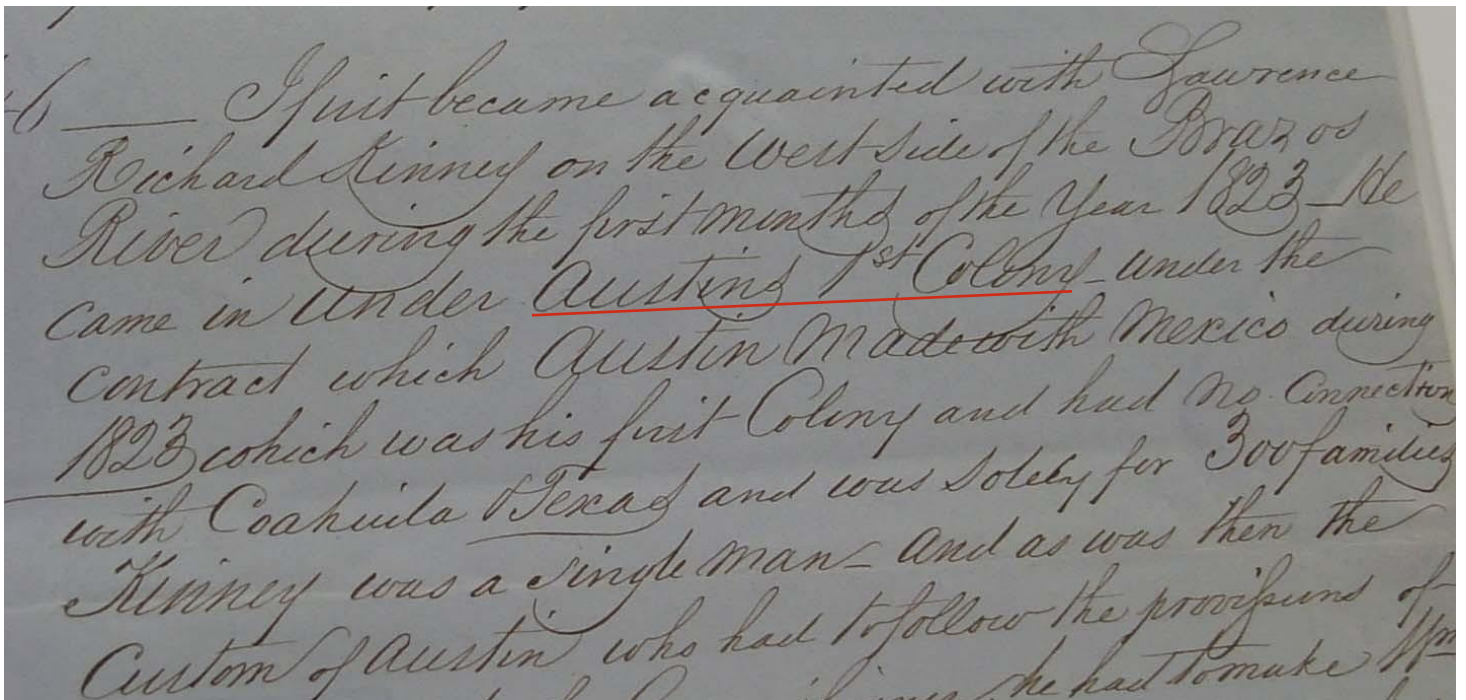 6 — I first became acquainted with Lawrence
Richard Kinney on the West side of the Brazos
River during the first months of the Year 1823 – He
came in under Austins 1st Colony – under the
contract which Austin Made with Mexico during
1823 which was his first Colony and had no Connection
with Coahuila & Texas and was solely for 300 families
Kinney was a single man – and as was then the
Custom of Austin who had to follow the provisions of
he had to make